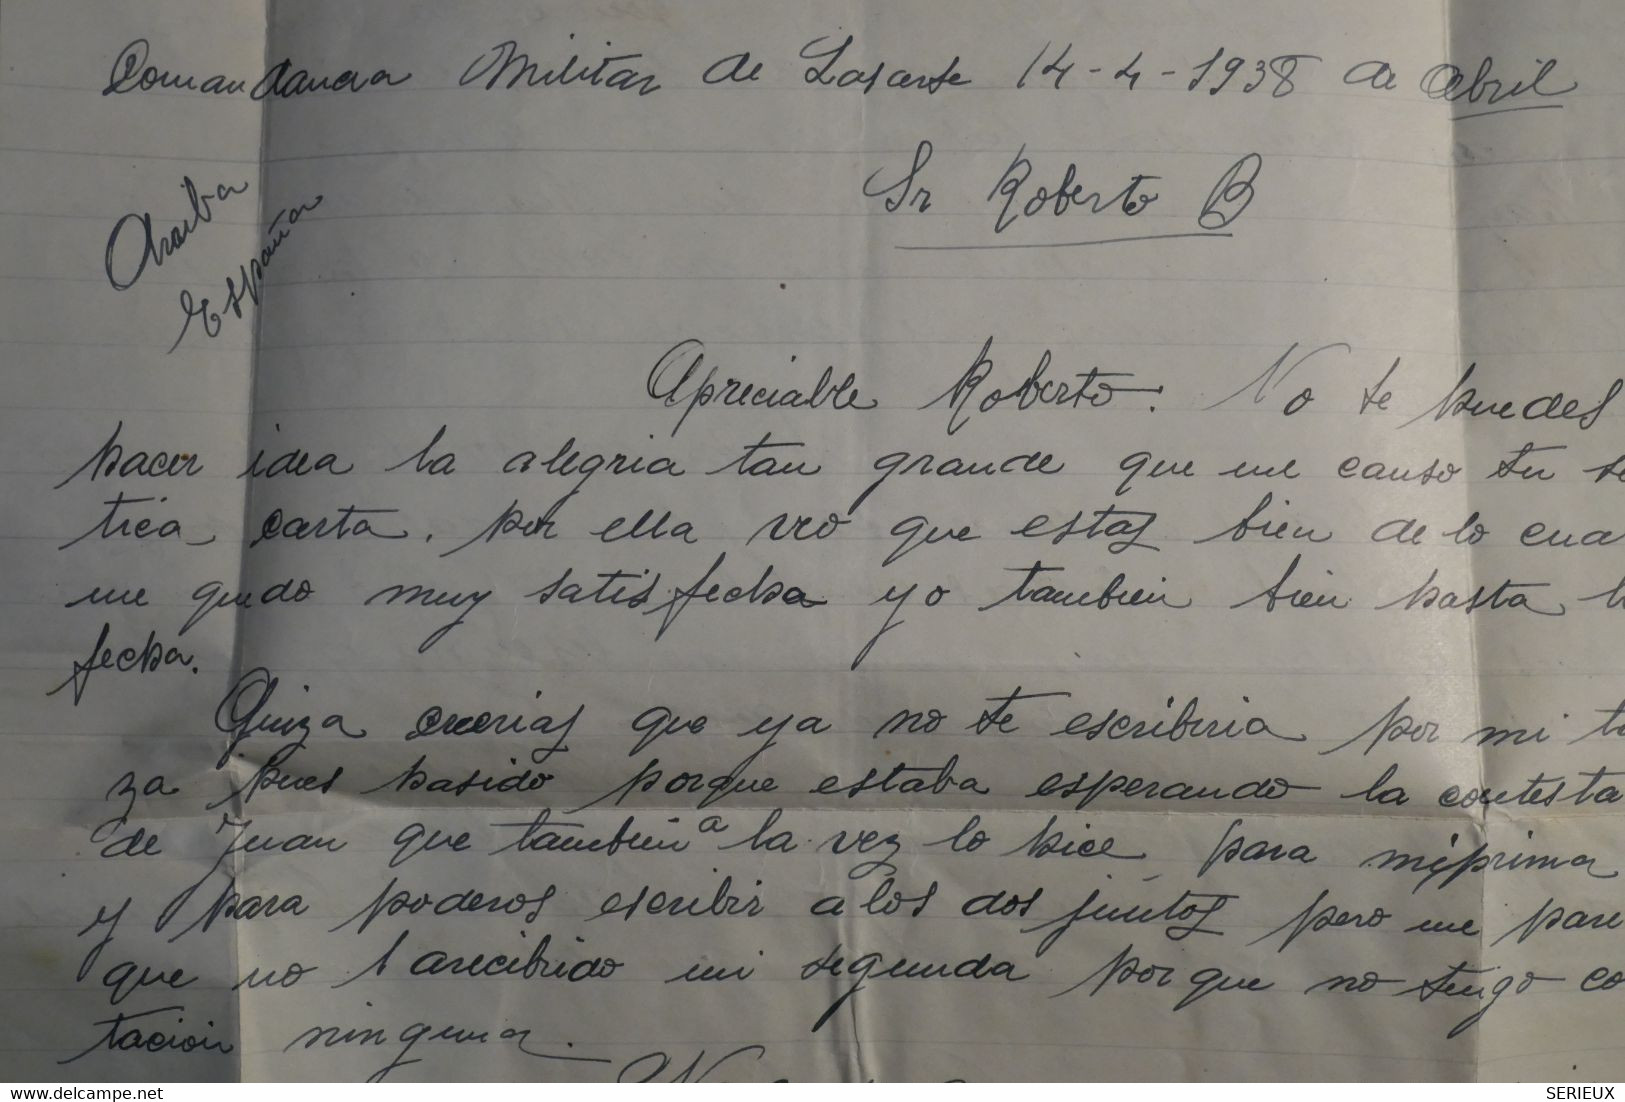 Comandancia Militar de Lasarte 14-4-1938 de Abril
Sr Roberto B
Arriba
España
Apreciable Roberto. No te puedes
hacer idea la alegria tan grande que me causo tu
tica carta. por ella veo que estas bien de lo cua
me quedo muy satisfecha yo tambien bien hasta l
fecha.
Quiza creerias que ya no te escribiria por mi t
za pues hasido porque estaba esperando la contesta
de Juan que tambien a la vez lo hice para mi prima
y para poderos escribir a los dos juntos pero me pare
que no arecibido mi segunda porque no tengo co
tacion ninguna.
delcampe.net
SERIEUX